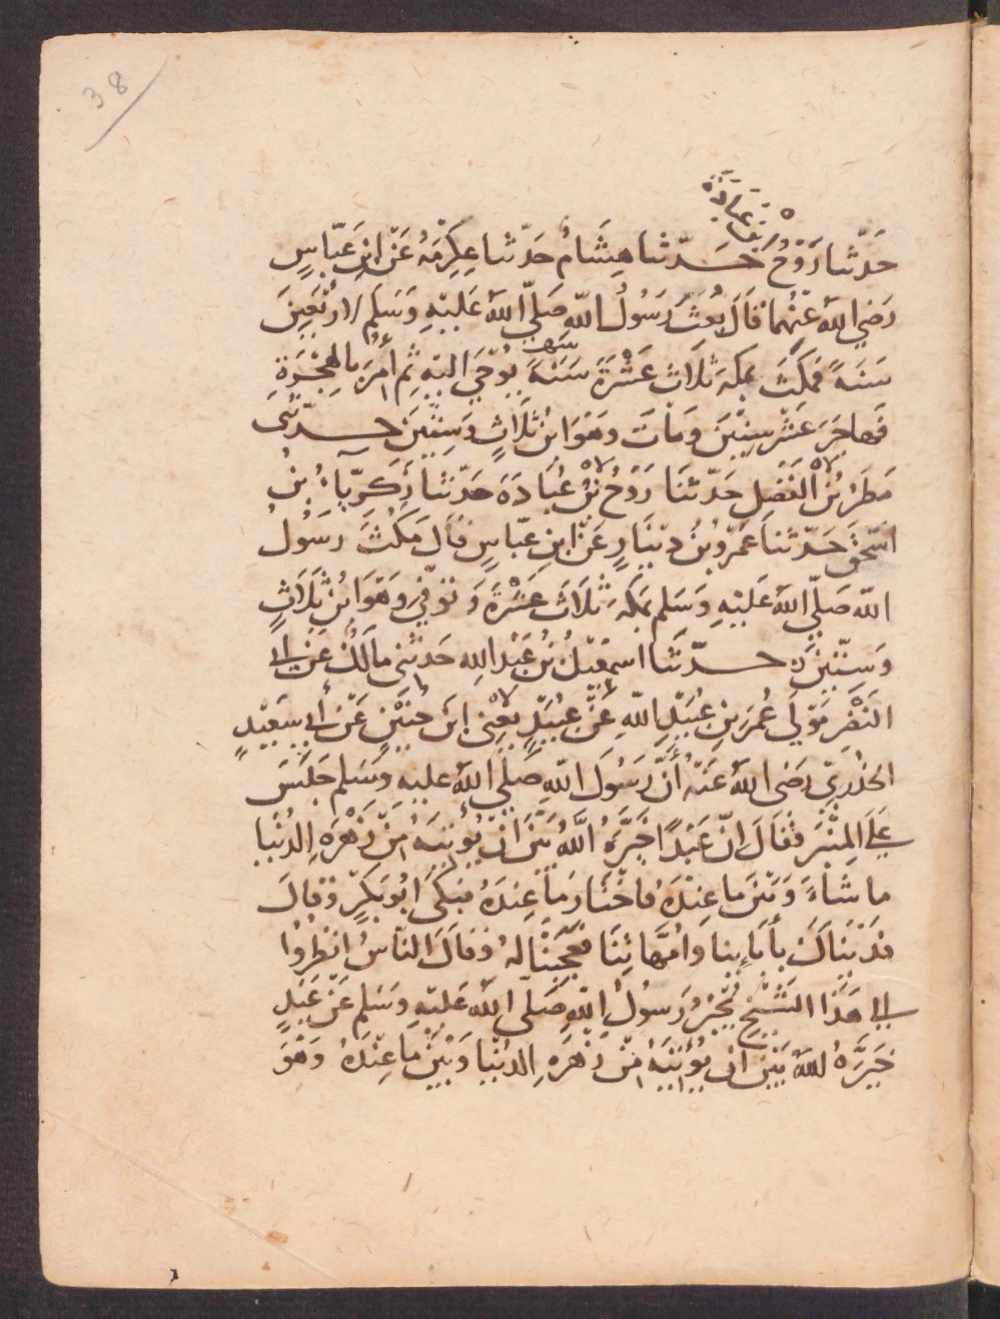 38
بن عبادة
حَدَّثنا رَوْحُ حَدّثنا هِشَامُ حَدّثنا عِكْرِمَةُ عَنْ ابْنِ عَبّاسٍ
رَضي اللهُ عَنْهُما قَالَ بُعِثَ رَسُولُ اللهِ صَلّي اللهُ عَلَيْهِ وَسَلم لِارْبَعِينَ
سَنَةً فمَكَثَ بمكةَ ثَلَاثَ عَشْرَةَ سَنَةً يُوحَي اليْهِ ثم أُمِرَ بالهِجْرَةِ
فَهاجَرَ عَشْرَ سِنِيْنَ وَمَاتَ وهَوَ ابْنُ ثَلَاثٍ وَسِتِينَ حدّثنى
مَطَرُ بْنُ الْفَضْلِ حَدّثنَا رَوْحُ بْنُ عُبَادَةَ حَدّثنا زَكَرِيّاءُ بْنُ
اسْحٰقَ حَدّثنا عَمْرُو بْنُ دِيْنَارٍ عَنْ ابنِ عبّاسٍ قَالَ مَكَثَ رَسُولُ
اللهِ صَلّي اللهُ عَلَيْهِ وَسَلم بمَكةَ ثَلَاثَ عَشْرَةَ وَتُوُفِيَ وَهَوَ ابْنُ ثَلَاثٍ
وَسِتّيْنَ حدّثنا اسمٰعِيْلُ بْنُ عَبْدِ اللهِ حَدثنى مالكُ عَنْ ابي
النَضْرِ مَوْلَي عُمَرَ بنِ عُبَيْدِ اللهِ عَنْ عُبَيْدٍ يَعْنِى ابنَ حُنَيْنٍ عَنْ أبي سَعِيْدٍ
الخُدْرِيّ رَضى اللهُ عَنْهُ أنَّ رَسُولَ اللهِ صَلّي اللهُ عليه وسَلم جَلَسَ
عَلَي المِنْبَرِ فَقَالَ انّ عَبْدًا خَيَّرَهُ اللهُ بَيْنَ انْ يُؤْتِيَهُ مِنْ زَهْرَةِ الدُنْيا
ما شاءَ وَبَيْنَ ما عِنْدَهُ فاخْتَارَ ما عِنْدَهُ فبَكَى ابُو بَكْرٍ وَقالَ
فدَيْنَاكَ بأبَائِنا وَامُّهَاتِنَا فعَجِبْنا لهُ وَقالَ النّاسُ انْظُرُوا
الي هَذَا الشَيْخِ يُخْبِرُ رَسُولُ اللهِ صَلّى اللهُ عَليْهِ وسَلم عَنْ عَبْدٍ
خَيَّرَهُ اللهُ بَيْنَ انْ يُؤْتِيَهُ مِنْ زَهْرَةِ الدُنْيا وَبَيْنَ ما عِنْدَهُ وَهْوَ